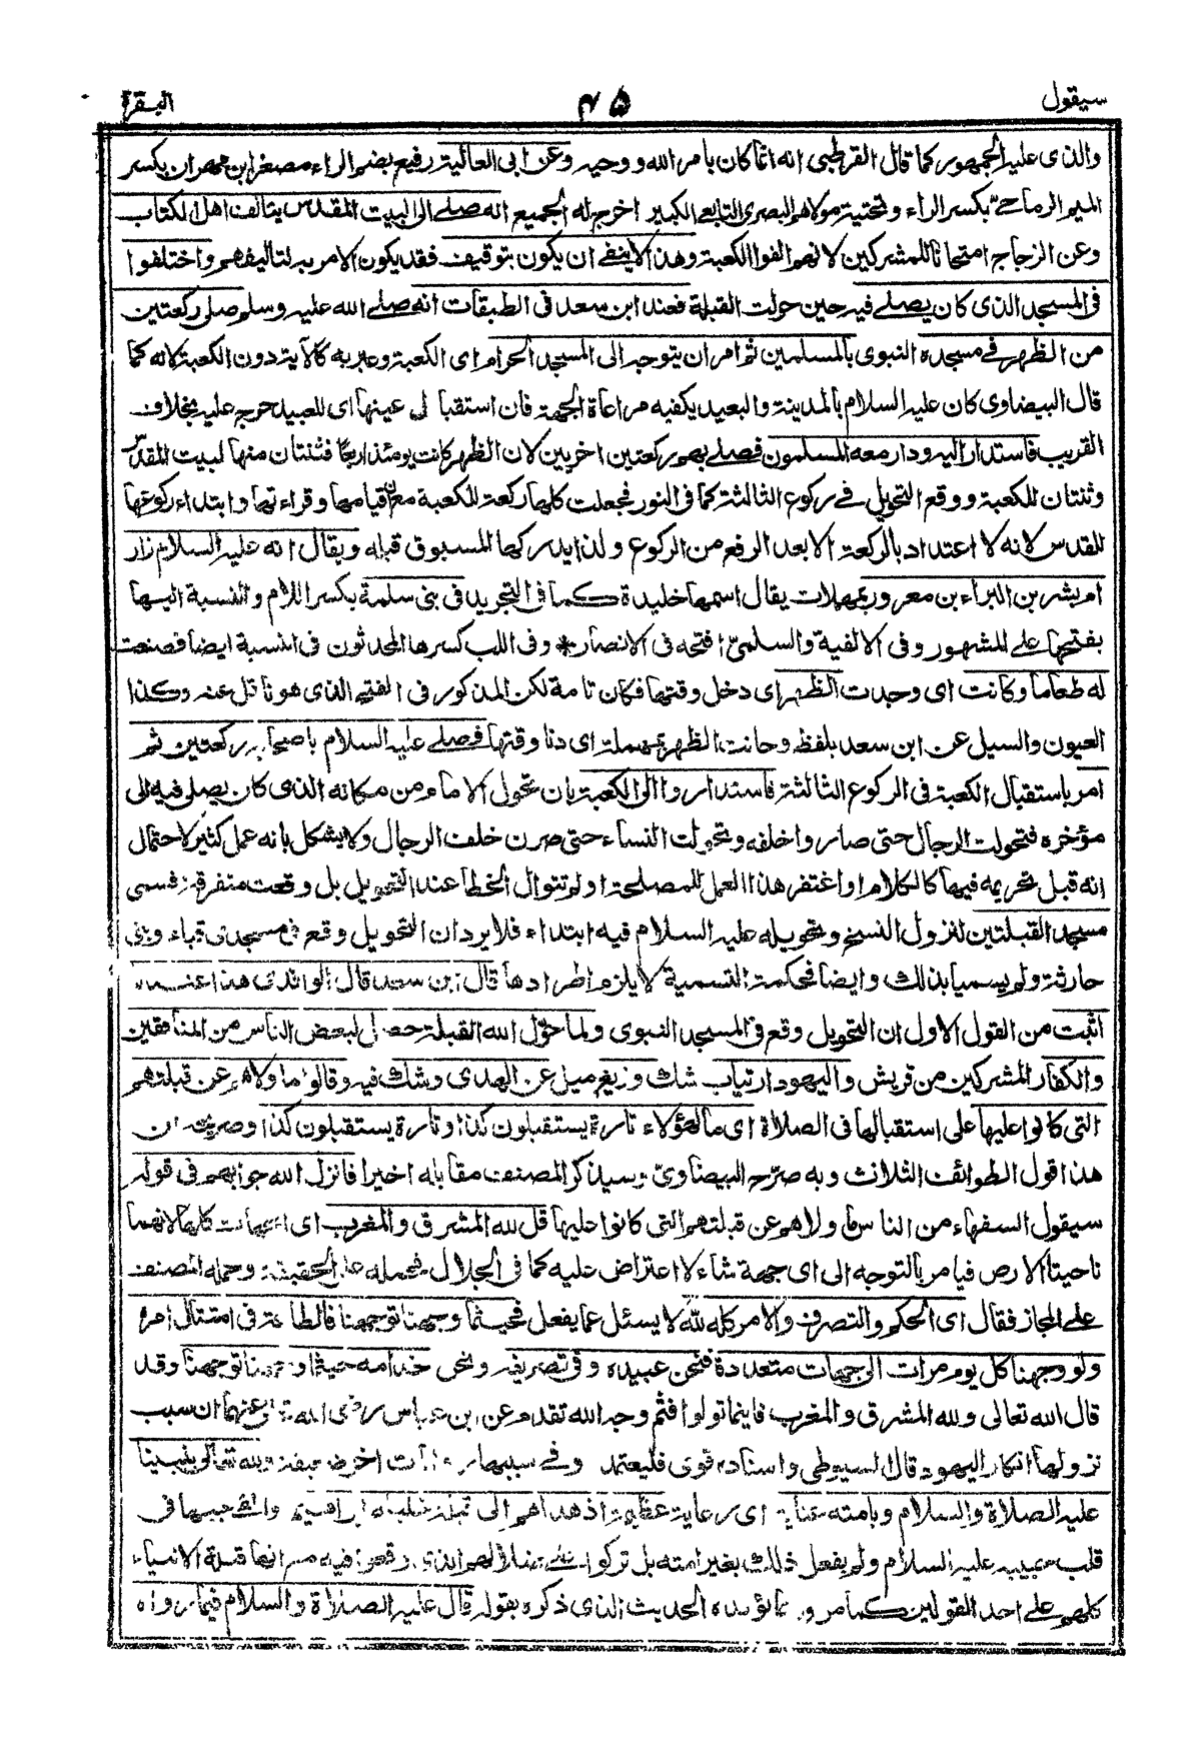 سيقول ۴۵ البقرة
والذى عليه الجمهور كما قال القرطبى انه انما كان بامر الله ووحيه وعن ابى العالية رفيع بضم الراء مصغر ابن مهران بكسر
الميم الرياحى بكسر الراء وتحتية مولاهم البصرى التابعى الكبير اخرج له الجميع انه صلى الى البيت المقدس يتالف اهل الكتاب
وعن الزجاج امتحانا للمشركين لانهم الفوا الكعبة وهذا لا ينفى ان يكون بتوقيف فقد يكون الامر به لتاليفهم واختلفوا
فى المسجد الذى كان يصلى فيه حين حولت القبلة فعند ابن سعد فى الطبقات انه صلى الله عليه وسلم صلى ركعتين
من الظهر فى مسجده النبوى بالمسلمين ثم امر ان يتوجه الى المسجد الحرام اى الكعبة وعبر به كالآية دون الكعبة لانه كما
قال البيضاوى كان عليه السلام بالمدينة والبعيد يكفيه مراعاة الجهة فان استقبال عينها اى للعبيد حرج عليه بخلاف
القريب فاستدار اليه ودار معه المسلمون فصلى بهم ركعتين اخريين لان الظهر كانت يومئذ اربعا فثنتان منها لبيت المقدس
وثنتان للكعبة ووقع التحويل فى ركوع الثالثة كما فى النور فجعلت كلها ركعة للكعبة مع ان قيامها وقراءتها وابتداء ركوعها
للقدس لانه لا اعتداد بالركعة الا بعد الرفع من الركوع ولذا يدركها المسبوق قبله ويقال انه عليه السلام زار
ام بشر بن البراء بن معرور بمهملات يقال اسمها خليدة كما فى التجريد فى بنى سلمة بكسر اللام والنسبة اليها
بفتحها على المشهور وفى الالفية والسلمى افتحه فى الانصار * وفى اللب كسرها المحدثون فى النسبة ايضا فصنعت
له طعاما وكانت اى وجدت الظهر اى دخل وقتها فكان تامة لكن المذكور فى الفتح الذى هو ناقل عنه وكذا
العيون والسبل عن ابن سعد بلفظ وحانت الظهر بمهملة اى دنا وقتها فصلى عليه السلام باصحابه ركعتين ثم
امر باستقبال الكعبة فى الركوع الثالثة فاستداروا الى الكعبة بان تحول الامام من مكانه الذى كان يصلى فيه الى
مؤخره فتحولت الرجال حتى صاروا خلفه وتحولت النساء حتى صرن خلف الرجال ولا يشكل بانه عمل كثير لاحتمال
انه قبل تحريمه فيها كالكلام او اغتفر هذا العمل للمصلحة او لم تتوال الخطا عند التحويل بل وقعت متفرقة فسمى
مسجد القبلتين لنزول النسخ وتحويله عليه السلام فيه ابتداء فلا يرد ان التحويل وقع فى مسجدى قباء وبنى
حارثة ولم يسميا بذلك وايضا فحكمة التسمية لا يلزم اطرادها قال ابن سعد قال الواقدى هذا عندنا
اثبت من القول الاول ان التحويل وقع فى المسجد النبوى ولما حول الله القبلة حصل لبعض الناس من المنافقين
والكفار المشركين من قريش واليهود ارتياب شك وزيغ ميل عن الهدى وشك فيه وقالوا ما ولاهم عن قبلتهم
التى كانوا عليها على استقبالها فى الصلاة اى ما لهؤلاء تارة يستقبلون كذا وتارة يستقبلون كذا وصريحه ان
هذا قول الطوائف الثلاث وبه صرح البيضاوى وسيذكر المصنف مقابله اخيرا فانزل الله جوابهم فى قوله
سيقول السفهاء من الناس ما ولاهم عن قبلتهم التى كانوا عليها قل لله المشرق والمغرب اى الجهات كلها لانهما
ناحيتا الارض فيامر بالتوجه الى اى جهة شاء لا اعتراض عليه كما فى الجلال فحمله على الحقيقة وحمله المصنف
على المجاز فقال اى الحكم والتصرف والامر كله لله لا يسئل عما يفعل فحيثما وجهنا توجهنا فالطاعة فى امتثال امره
ولو وجهنا كل يوم مرات الى جهات متعددة فنحن عبيده وفى تصريفه ونحن خدامه حيثما وجهنا توجهنا وقد
قال الله تعالى ولله المشرق والمغرب فاينما تولوا فثم وجه الله تقدم عن ابن عباس رضى الله تعالى عنهما ان سبب
نزولها انكار اليهود قال السيوطى واسناده قوى فليعتمد وفى سببها روايات اخر ضعيفة ولله تعالى بنبينا
عليه الصلاة والسلام وبامته عناية اى رعاية عظيمة اذ هداهم الى قبلة خليله ابراهيم والقى حبها فى
قلب حبيبه عليه السلام ولم يفعل ذلك بغير امته بل تركوا على ضلالهم الذى وقعوا فيه مع انها قبلة الانبياء
كلهم على احد القولين كما مر و. مما يؤيده الحديث الذى ذكره بقوله قال عليه الصلاة والسلام فيما رواه